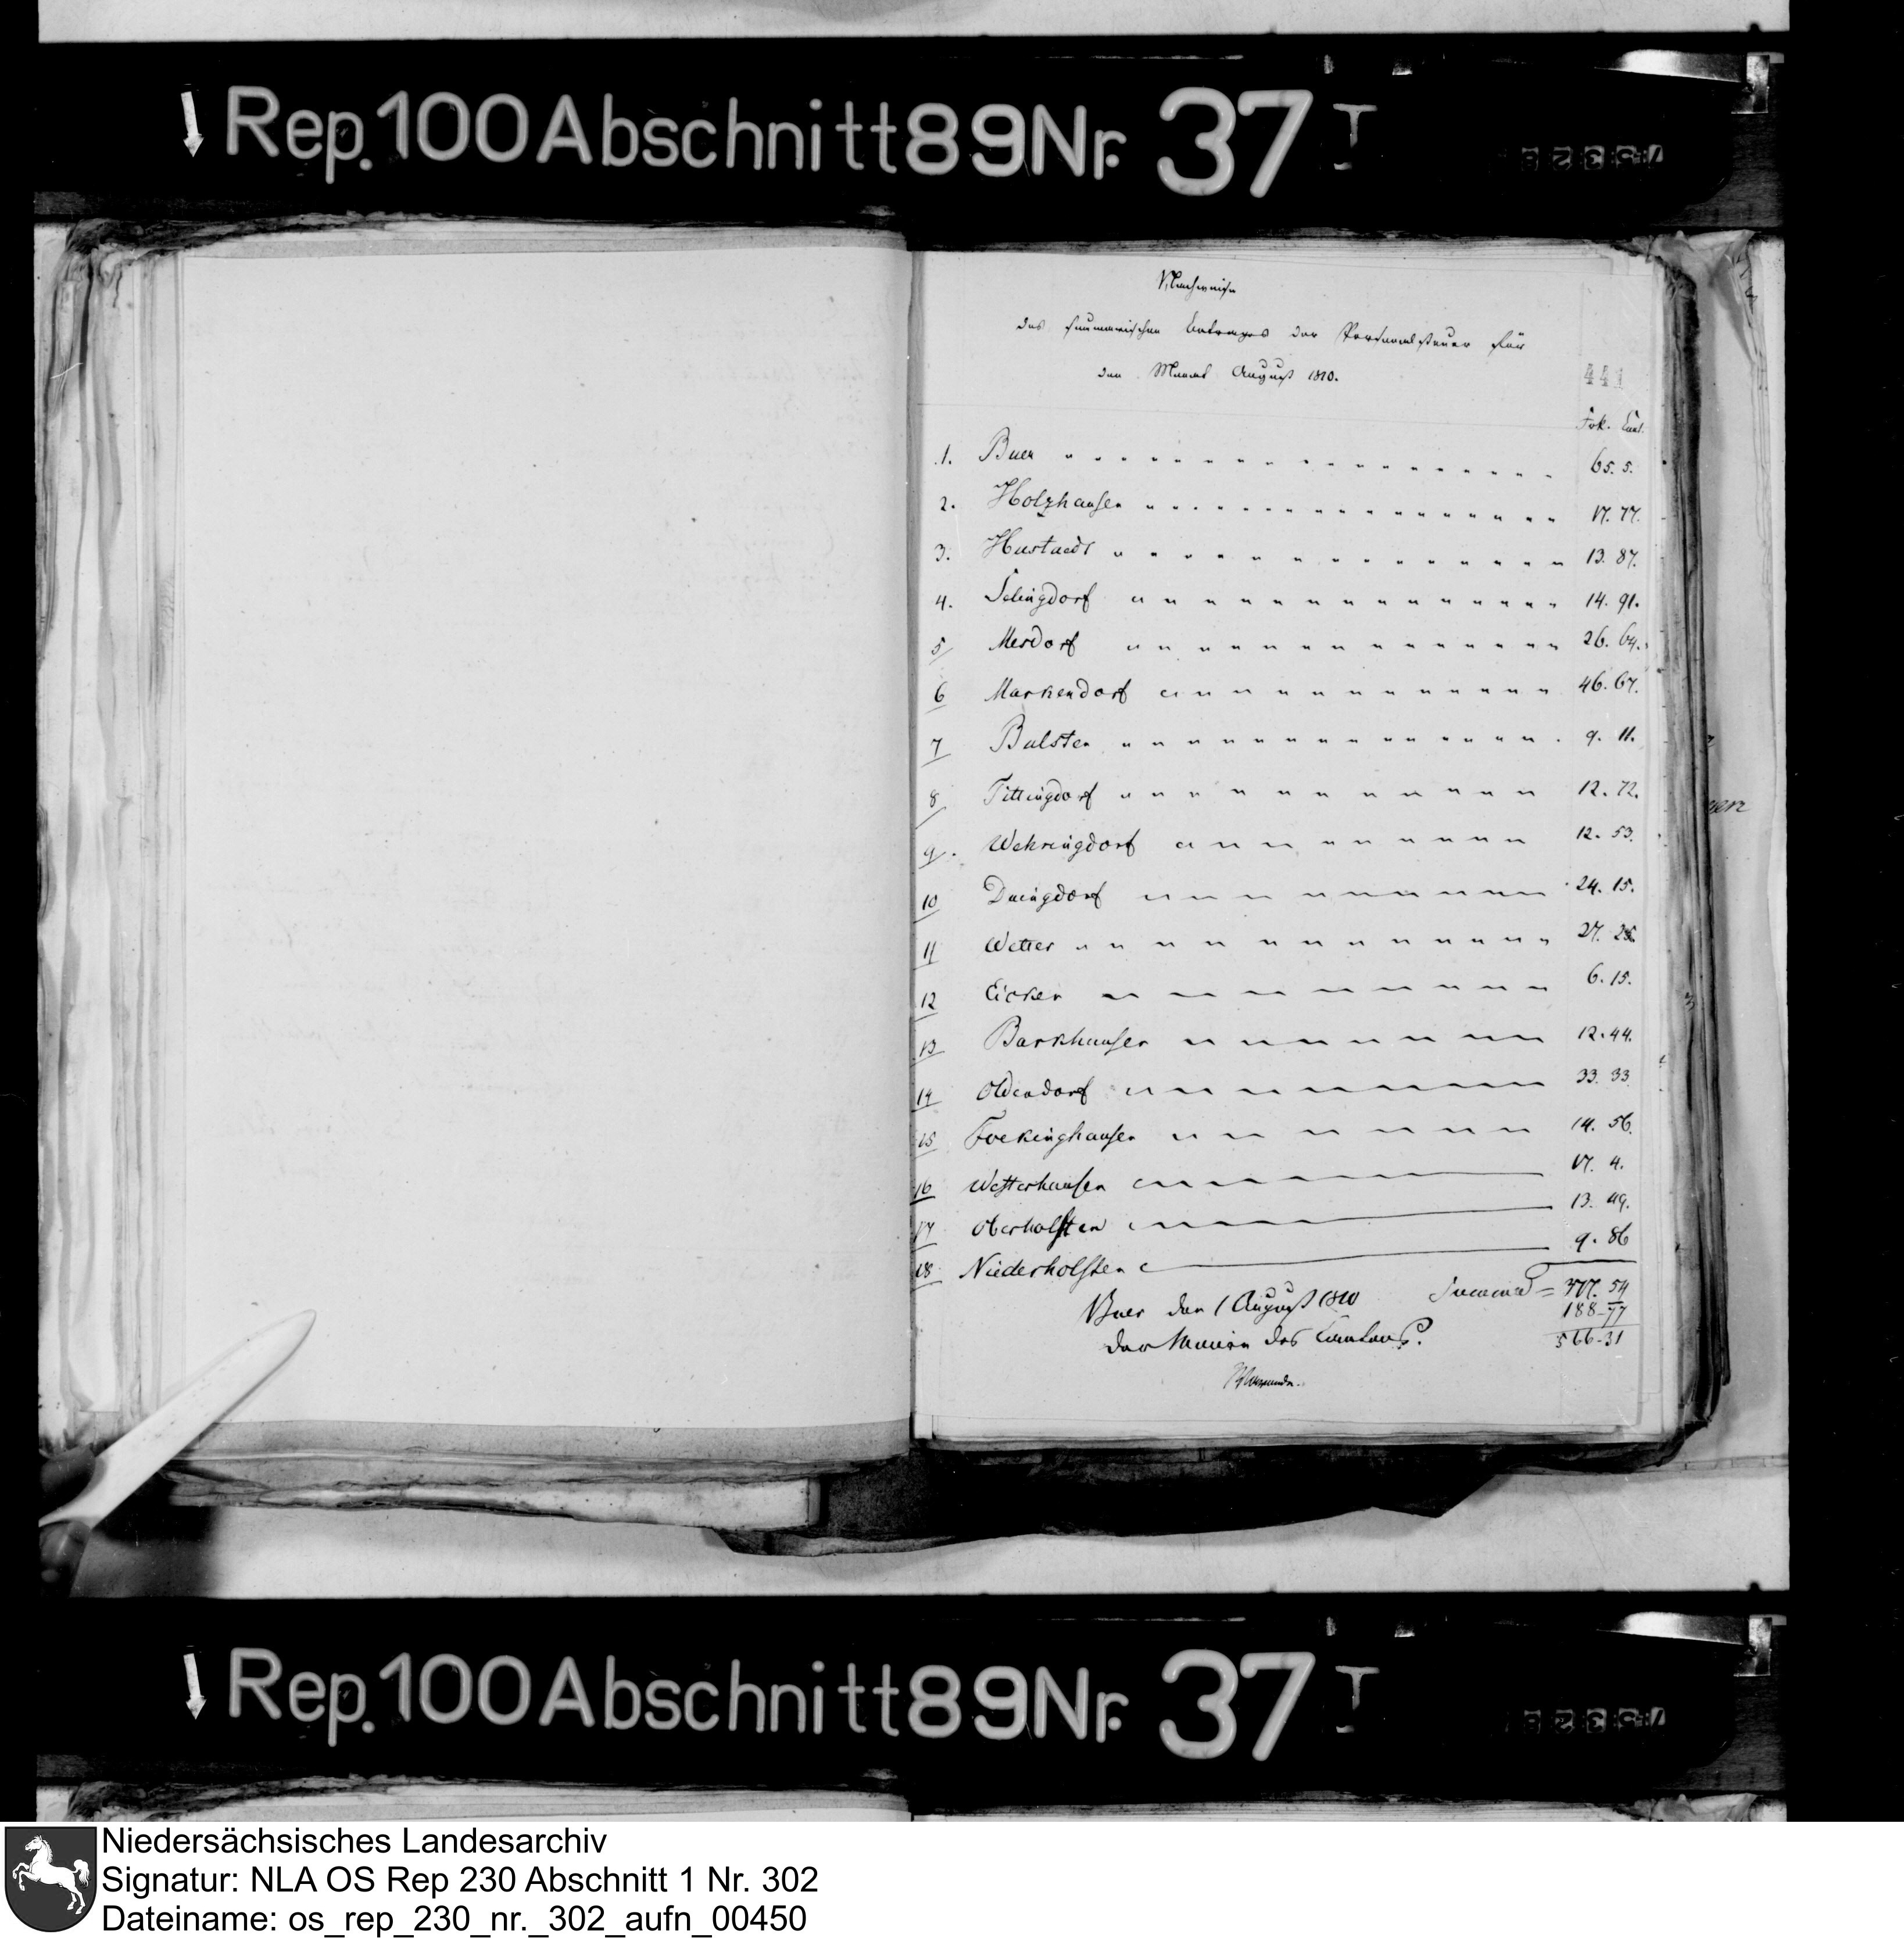 Rep.100 Abschnitt 89 Nr. 37 I
Nachweise
des summarischen Betrages der Personalsteuer für
den Monat August 1810.
441
Frk. Cent.
1. Buer 65. 5.
2. Holzhausen 17. 77.
3. Hustaedt 13. 87.
4. Sehlingdorf 14. 91.
5 Mesdorf 26. 64.
6 Markendorf 46. 67.
7 Bulsten 9. 11.
8 Tittingdorf 12. 72.
9. Wehringdorf 12. 53.
10 Duingdorf 24. 15.
11 Wetter 27. 25
12 Eicken 6. 15.
13 Barkhausen 12. 44.
14 Oldendorf 33. 33
15 Foekinghausen 14. 56.
16 Westerhausen 17. 4.
17 Oberholsten 13. 49.
18. Niederholsten 9. 86
Buer den 1 August 1810 Summa = 377. 54
188-77
Der Maire des Cantons. 566-31
Rep.100 Abschnitt 89 Nr. 37 I
Niedersächsisches Landesarchiv
Signatur: NLA OS Rep 230 Abschnitt 1 Nr. 302
Dateiname: os_rep_230_nr._302_aufn_00450